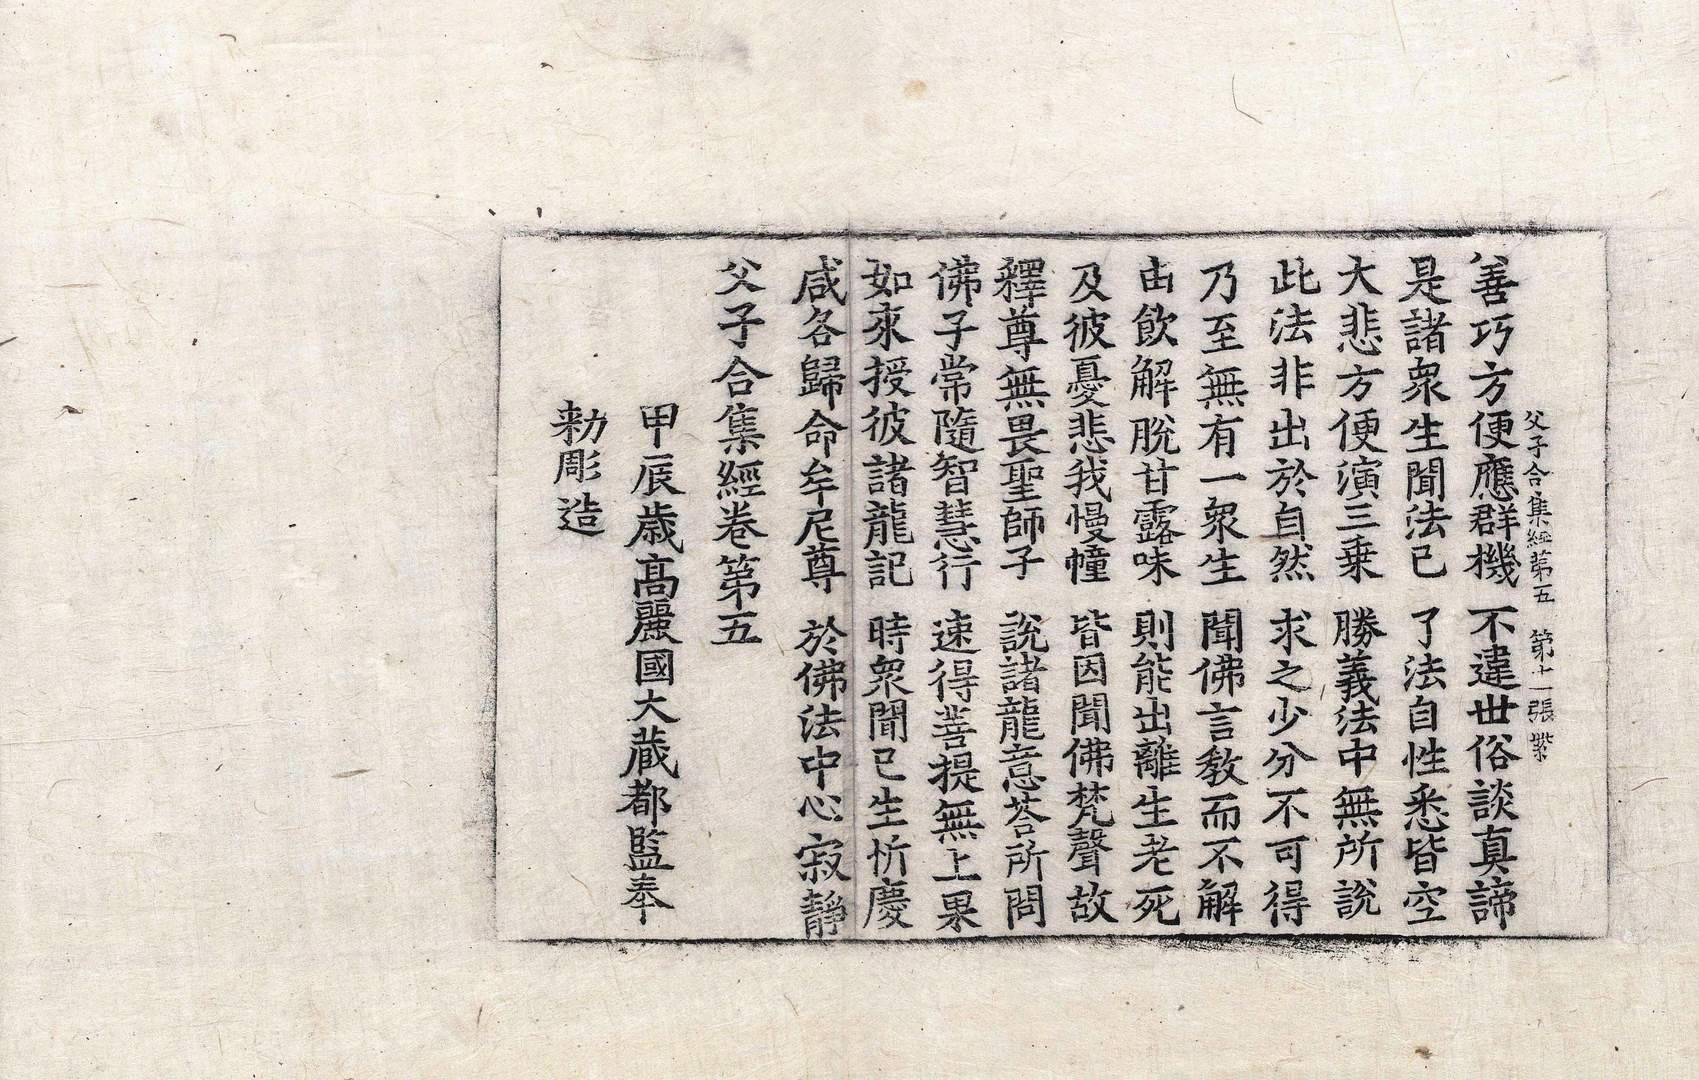 父子合集經第五　第十一張　紫
善巧方便應群機　不違世俗談真諦
是諸衆生聞法已　了法自性悉皆空
大悲方便演三乗　勝義法中無所說
此法非出於自然　求之少分不可得
乃至無有一衆生　聞佛言教而不解
由飲解脫甘露味　則能出離生老死
及彼憂悲我慢幢　皆因聞佛梵聲故
釋尊無畏聖師子　說諸龍意荅所問
佛子常隨智慧行　速得菩提無上果
如來授彼諸龍記　時衆聞已生忻慶
咸各歸命牟尼尊　於佛法中心寂靜
父子合集經卷第五
甲辰歲高麗國大藏都監奉
勅彫造